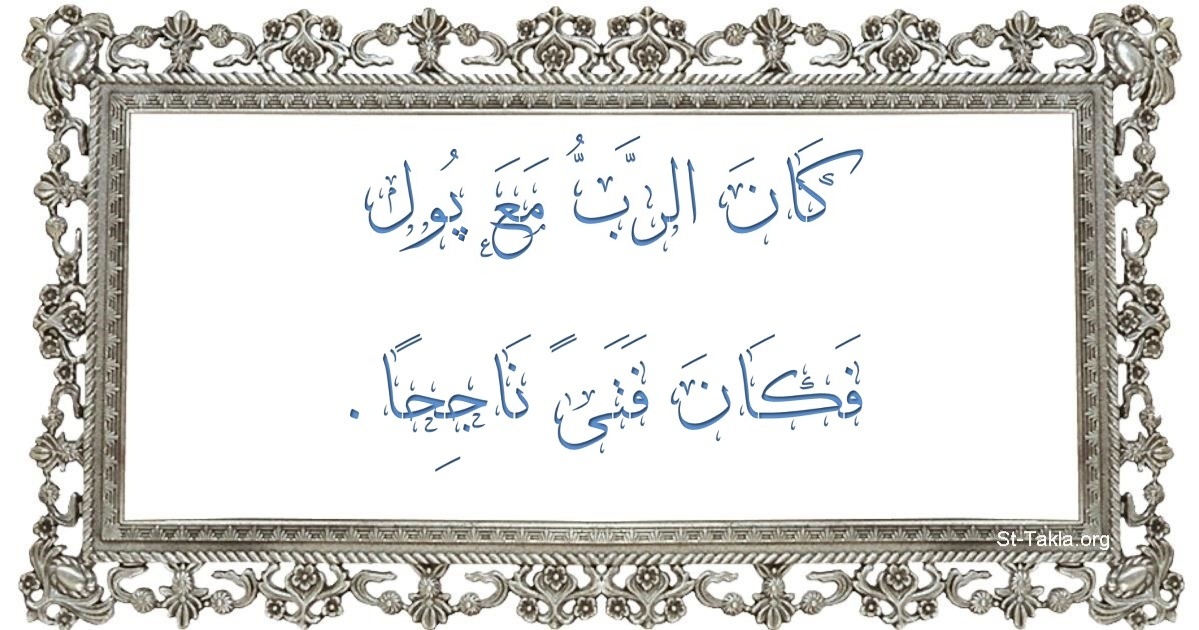 كَانَ الرَّبُّ مَعَ پُول
فَكَانَ فَتَىً نَاجِحًا.
St-Takla.org